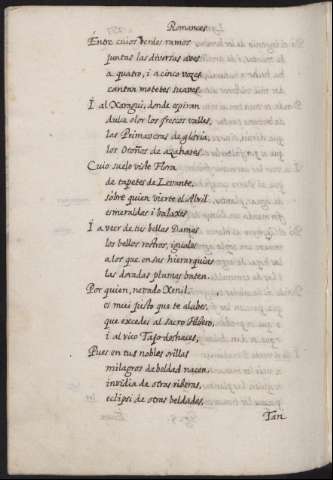 Romances
En los cuios verdes ramos
juntas las diversas aves
a quatro, i a cinco vozes
cantan motetes suaves.
I al Xaragui, donde espiran
dulce olor los frescos valles,
las Primaveras de gloria,
los Otoños de azahares.
Cuio suelo viste Flora
de tapetes de Levante,
sobre quien vierte el Abril
esmeraldas i balaxes.
I a veer de tus bellas Damas
los bellos rostros, iguales
a los que en sus hierarquias
las doradas plumas baten.
Por quien, nevado Xenil,
es mui justo que te alabes,
que excedes al sacro Ibero,
i al rico Tajo deshaces,
Pues en tus nobles orillas
milagros de beldad nacen,
invidia de otras riberas,
eclipsi de otras beldades,
Tan